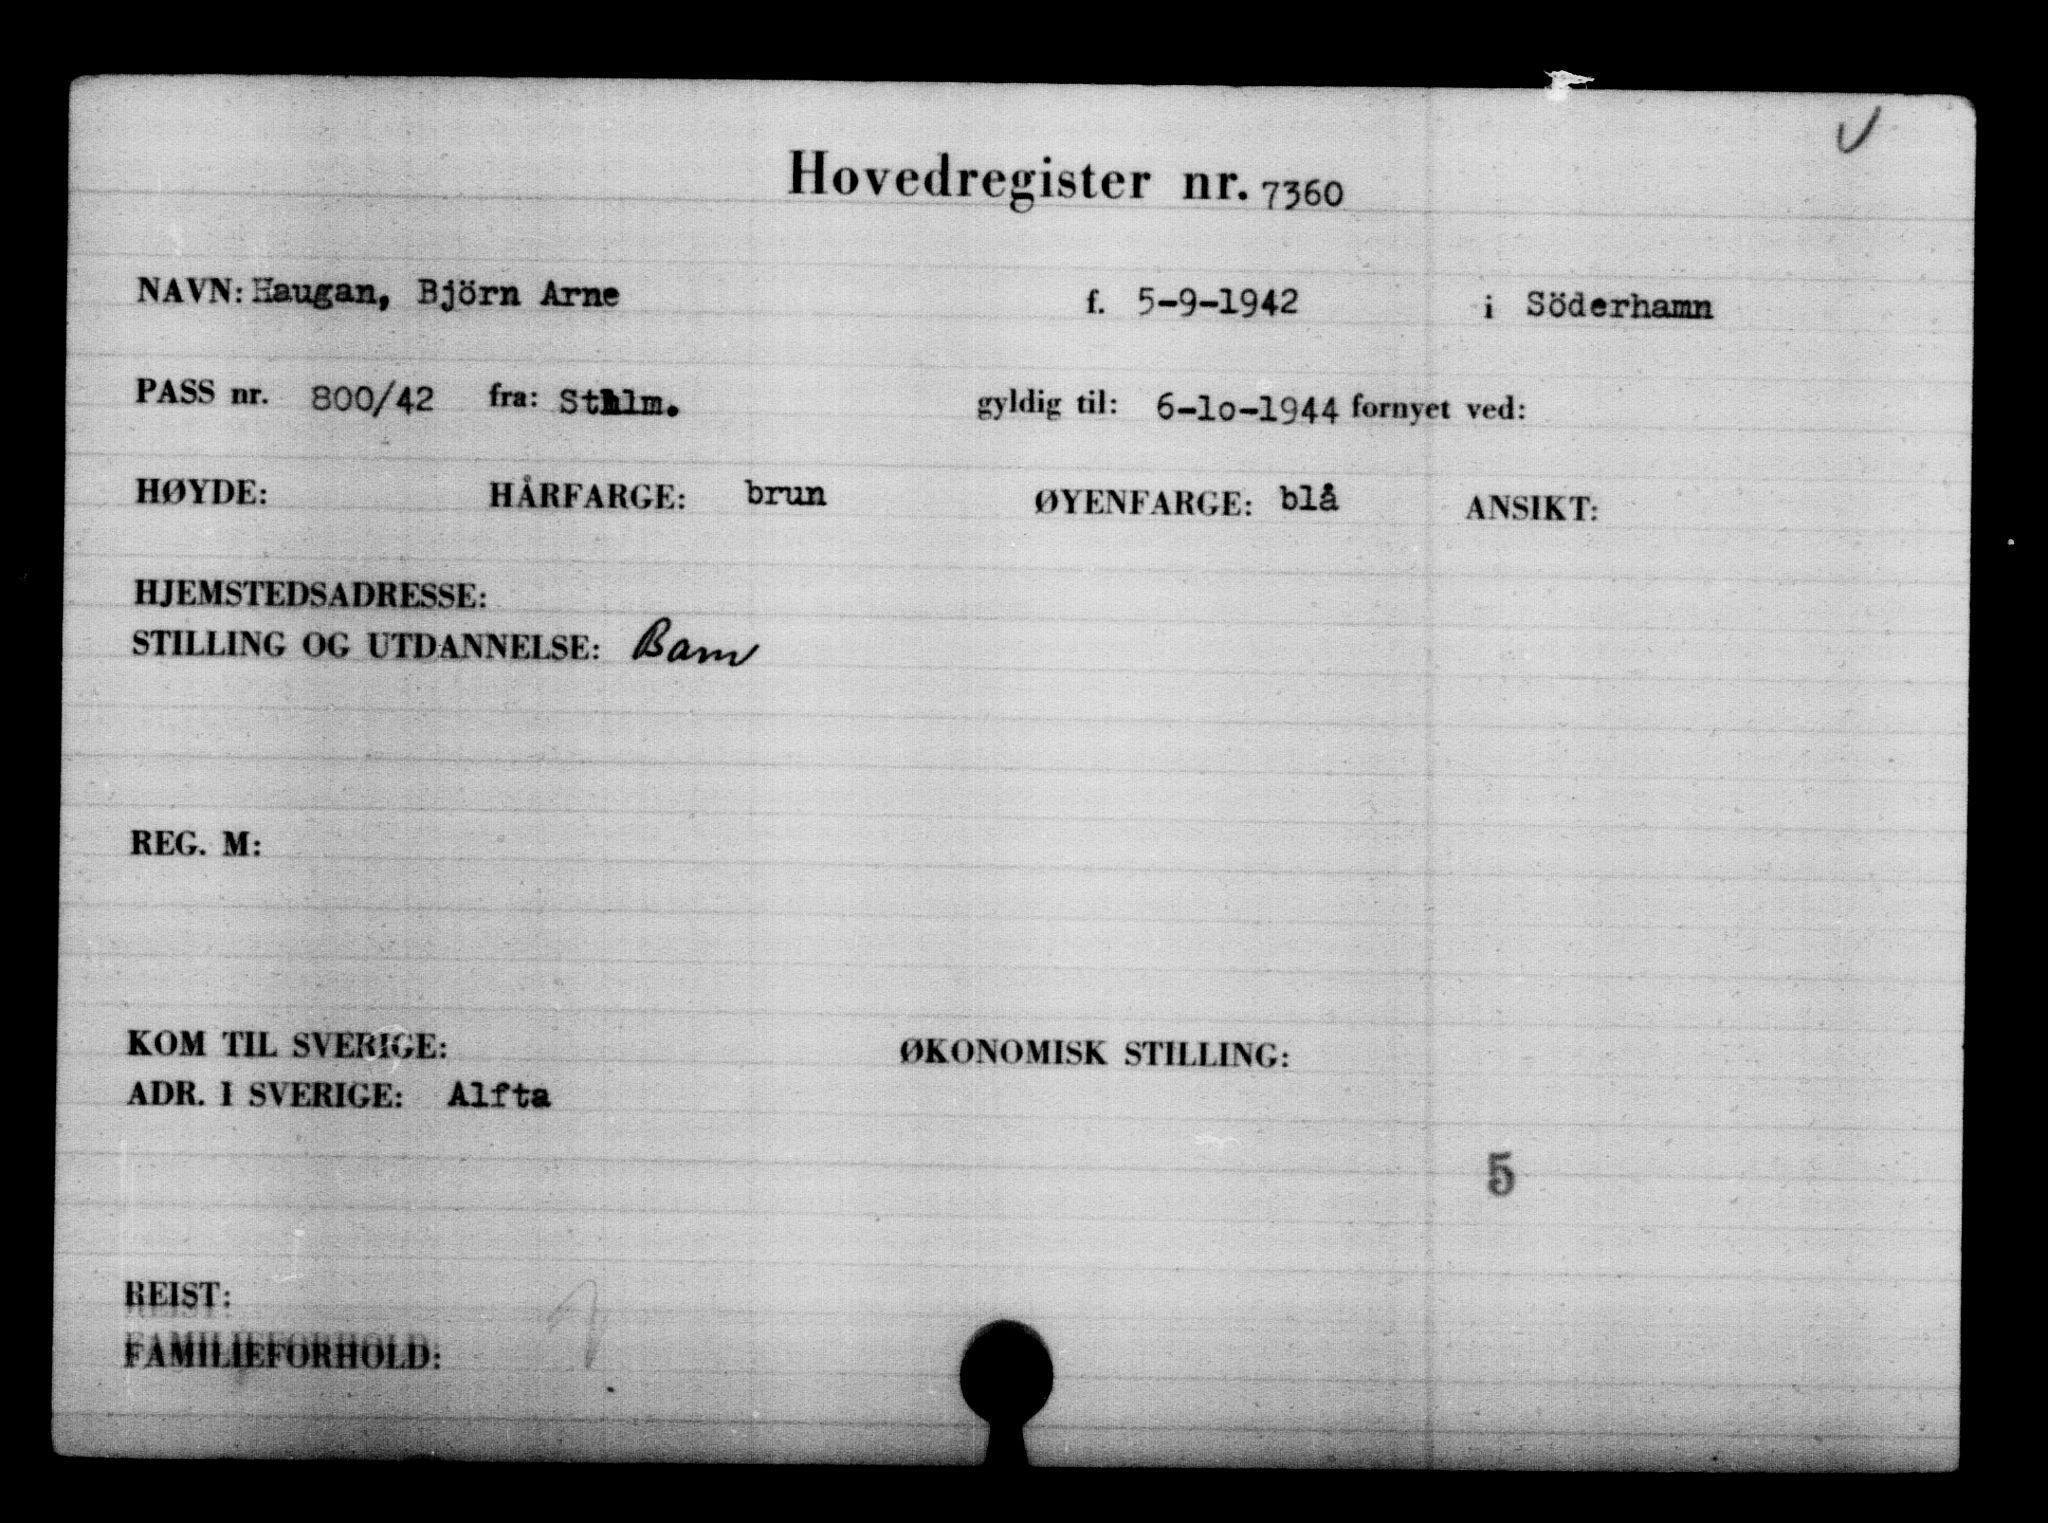 Hovedregister nr. 7360
NAVN: Haugan, Björn Arne f. 5-9-1942 i Söderhamn
PASS nr. 800/42 fra: Sthlm. gyldig til: 6-10-1944 fornyet ved:
HØYDE: HÅRFARGE: brun ØYENFARGE: blå ANSIKT:
HJEMSTEDSADRESSE:
STILLING OG UTDANNELSE: Barn
REG. M:
KOM TIL SVERIGE: ØKONOMISK STILLING:
ADR. I SVERIGE: Alfta
5
REIST:
FAMILIEFORHOLD: